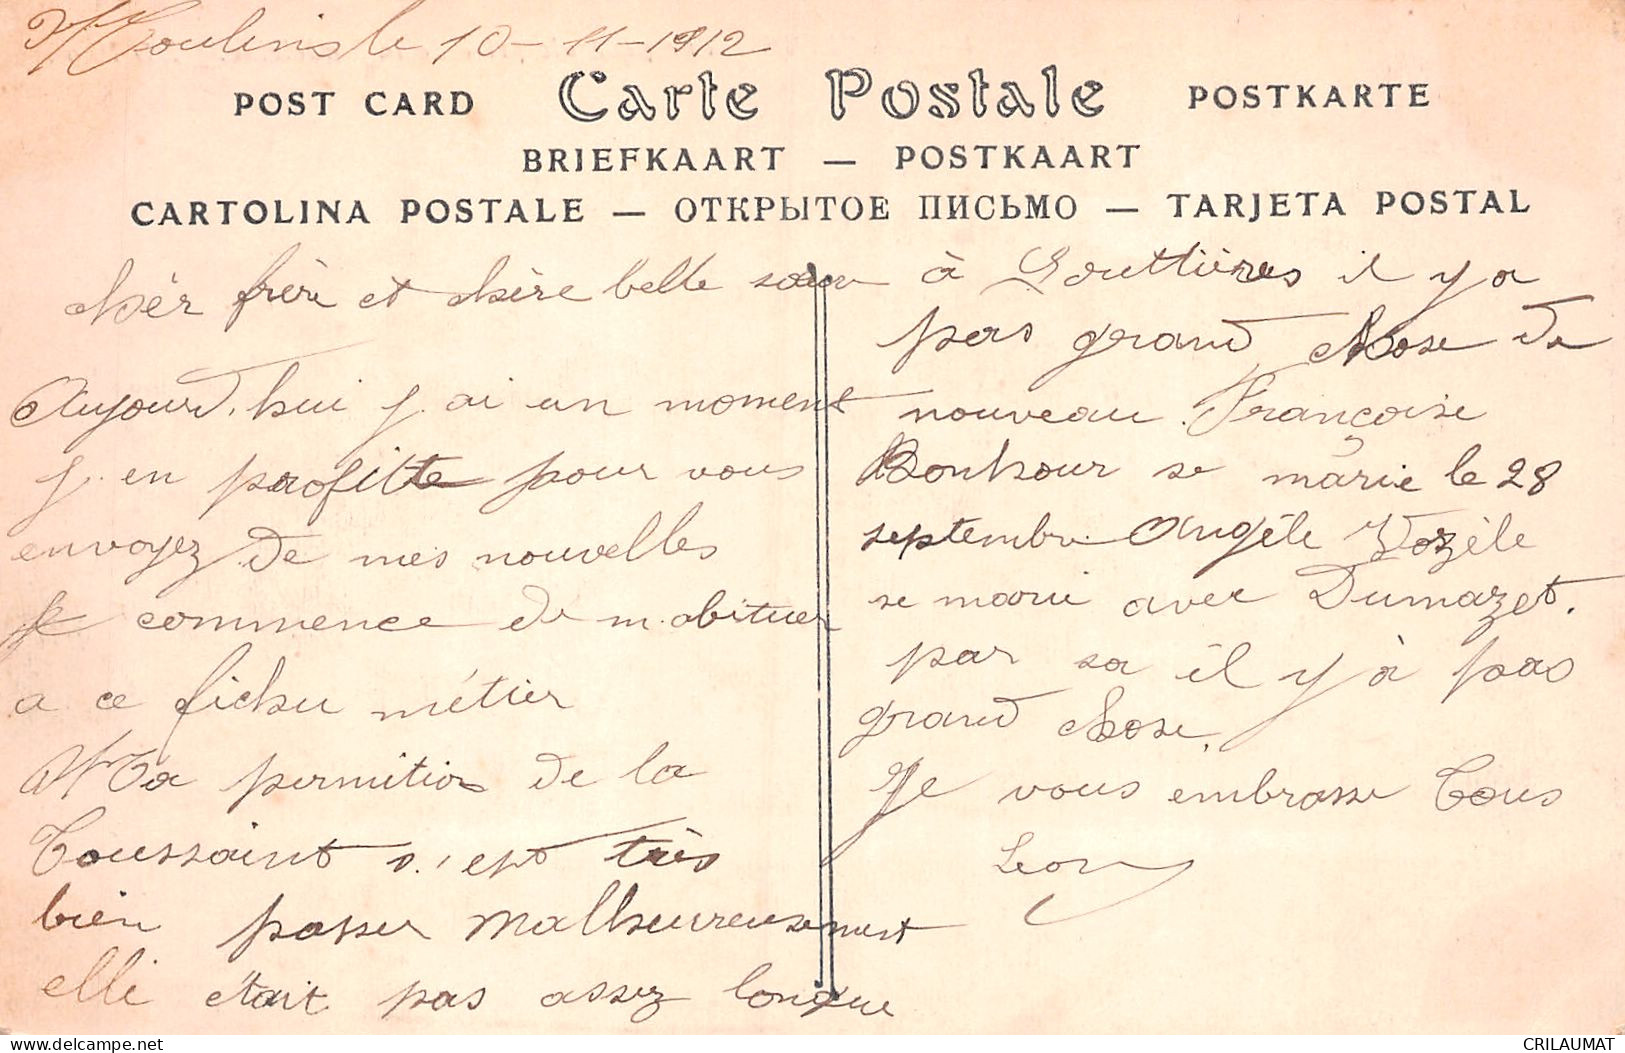 Moulins le 10-11-1912
POST CARD Carte Postale POSTKARTE
BRIEFKAART — POSTKAART
CARTOLINA POSTALE — ОТКРЫТОЕ ПИСЬМО — TARJETA POSTAL
chèr frère et chère belle sœur
Aujourd'hui j'ai un moment
j'en profitte pour vous
envoyez de mes nouvelles
Je commence de m'abituer
a ce fichu métier
Ma permition de la
Toussaint s'est très
bien passer malheureusement
elle était pas assez longue
à Gouttières il y a
pas grand chose de
nouveau. Françoise
Bonhour se marie le 28
septembre Angèle
se marie avec Dumazet.
par sa il y à pas
grand chose.
Je vous embrasse Tous
Leon
delcampe.net
CRILAUMAT